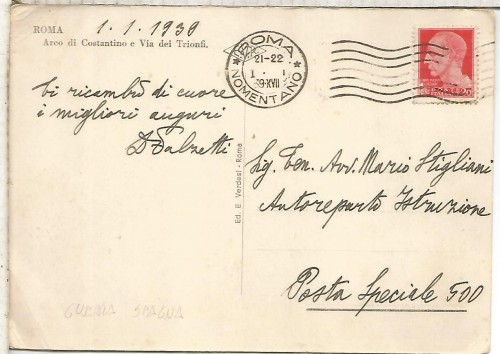 ROMA
Arco di Costantino e Via dei Trionfi.
1.1.1939
Vi ricambio di cuore
i migliori auguri
D Balzetti
Ed. E. Verdesi - Roma
ROMA
NOMENTANO
21-22
1 . 1
39-XVII
Sig. Ten. Avv. Mario Stigliani
Autoreparto Istruzione
Posta Speciale 500
GUERRA SPAGNA